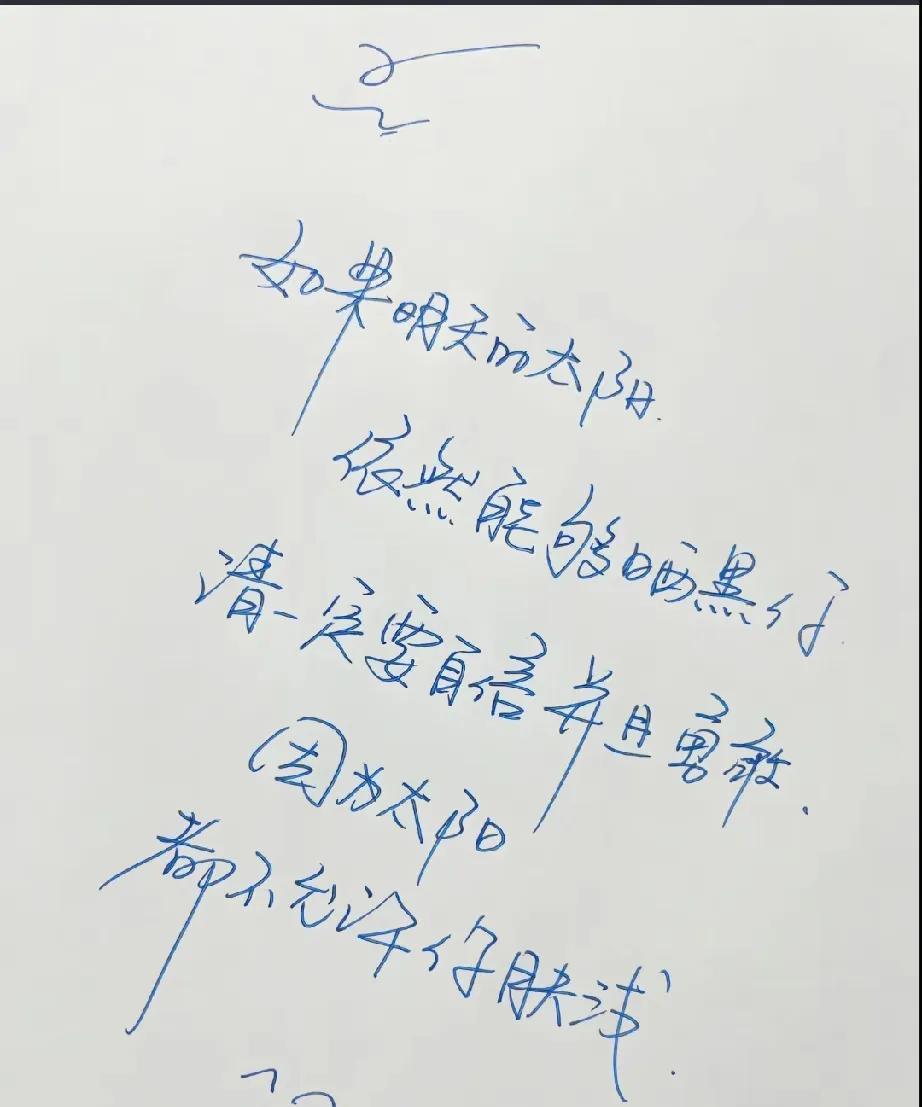 如果明天的太阳.
依然能够晒黑你.
请一定要自信并且勇敢.
因为太阳
都不允许你肤浅.